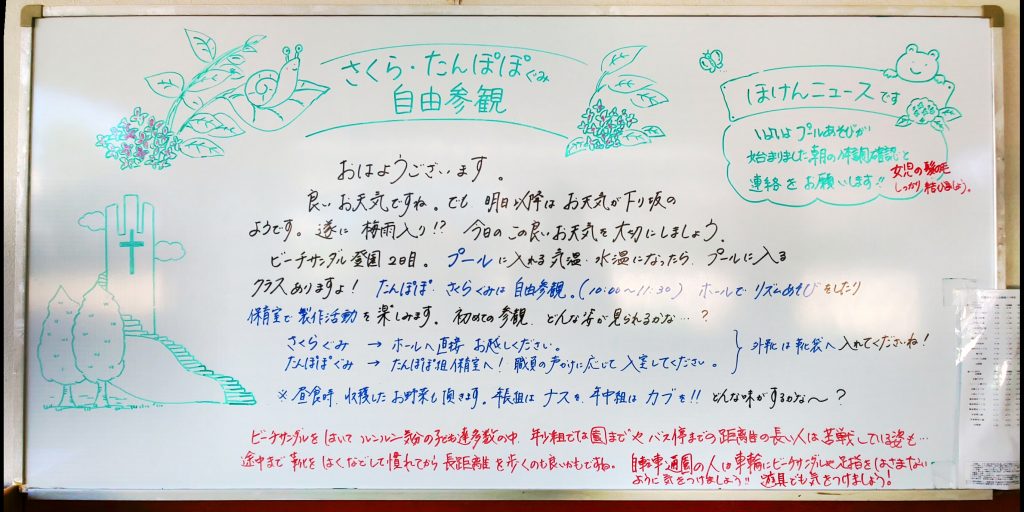 さくら・たんぽぽぐみ
自由参観
ほけんニュースです
いよいよプールあそびが
始まりました。朝の体調確認と
連絡をお願いします!!
女児の髪の毛
しっかり結びましょう。
おはようございます。
良いお天気ですね。でも明日以降はお天気が下り坂の
ようです。遂に梅雨入り!? 今日のこの良いお天気を大切にしましょう。
ビーチサンダル登園2日目。プールに入れる気温・水温になったら、プールに入る
クラスありますよ! たんぽぽ、さくらぐみは自由参観。(10:00〜11:30) ホールでリズムあそびをしたり
保育室で製作活動を楽しみます。初めての参観、どんな姿が見られるかな…?
さくらぐみ → ホールへ直接お越しください。
たんぽぽぐみ → たんぽぽ組保育室へ! 職員の声かけに応じて入室してください。
外靴は靴袋へ入れてくださいね!
※昼食時、収穫したお野菜も頂きます。年長組はナスを、年中組はカブを!! どんな味がするかな〜?
ビーチサンダルをはいてルンルン気分の子ども達多数の中、年少組では園までやバス停までの距離の長い人は苦戦している姿も…
途中まで靴をはくなどして慣れてから長距離を歩くのも良いかもですね。自転車通園の人は車輪にビーチサンダルや足指をはさまない
ように気をつけましょう!! 遊具でも気をつけましょう!